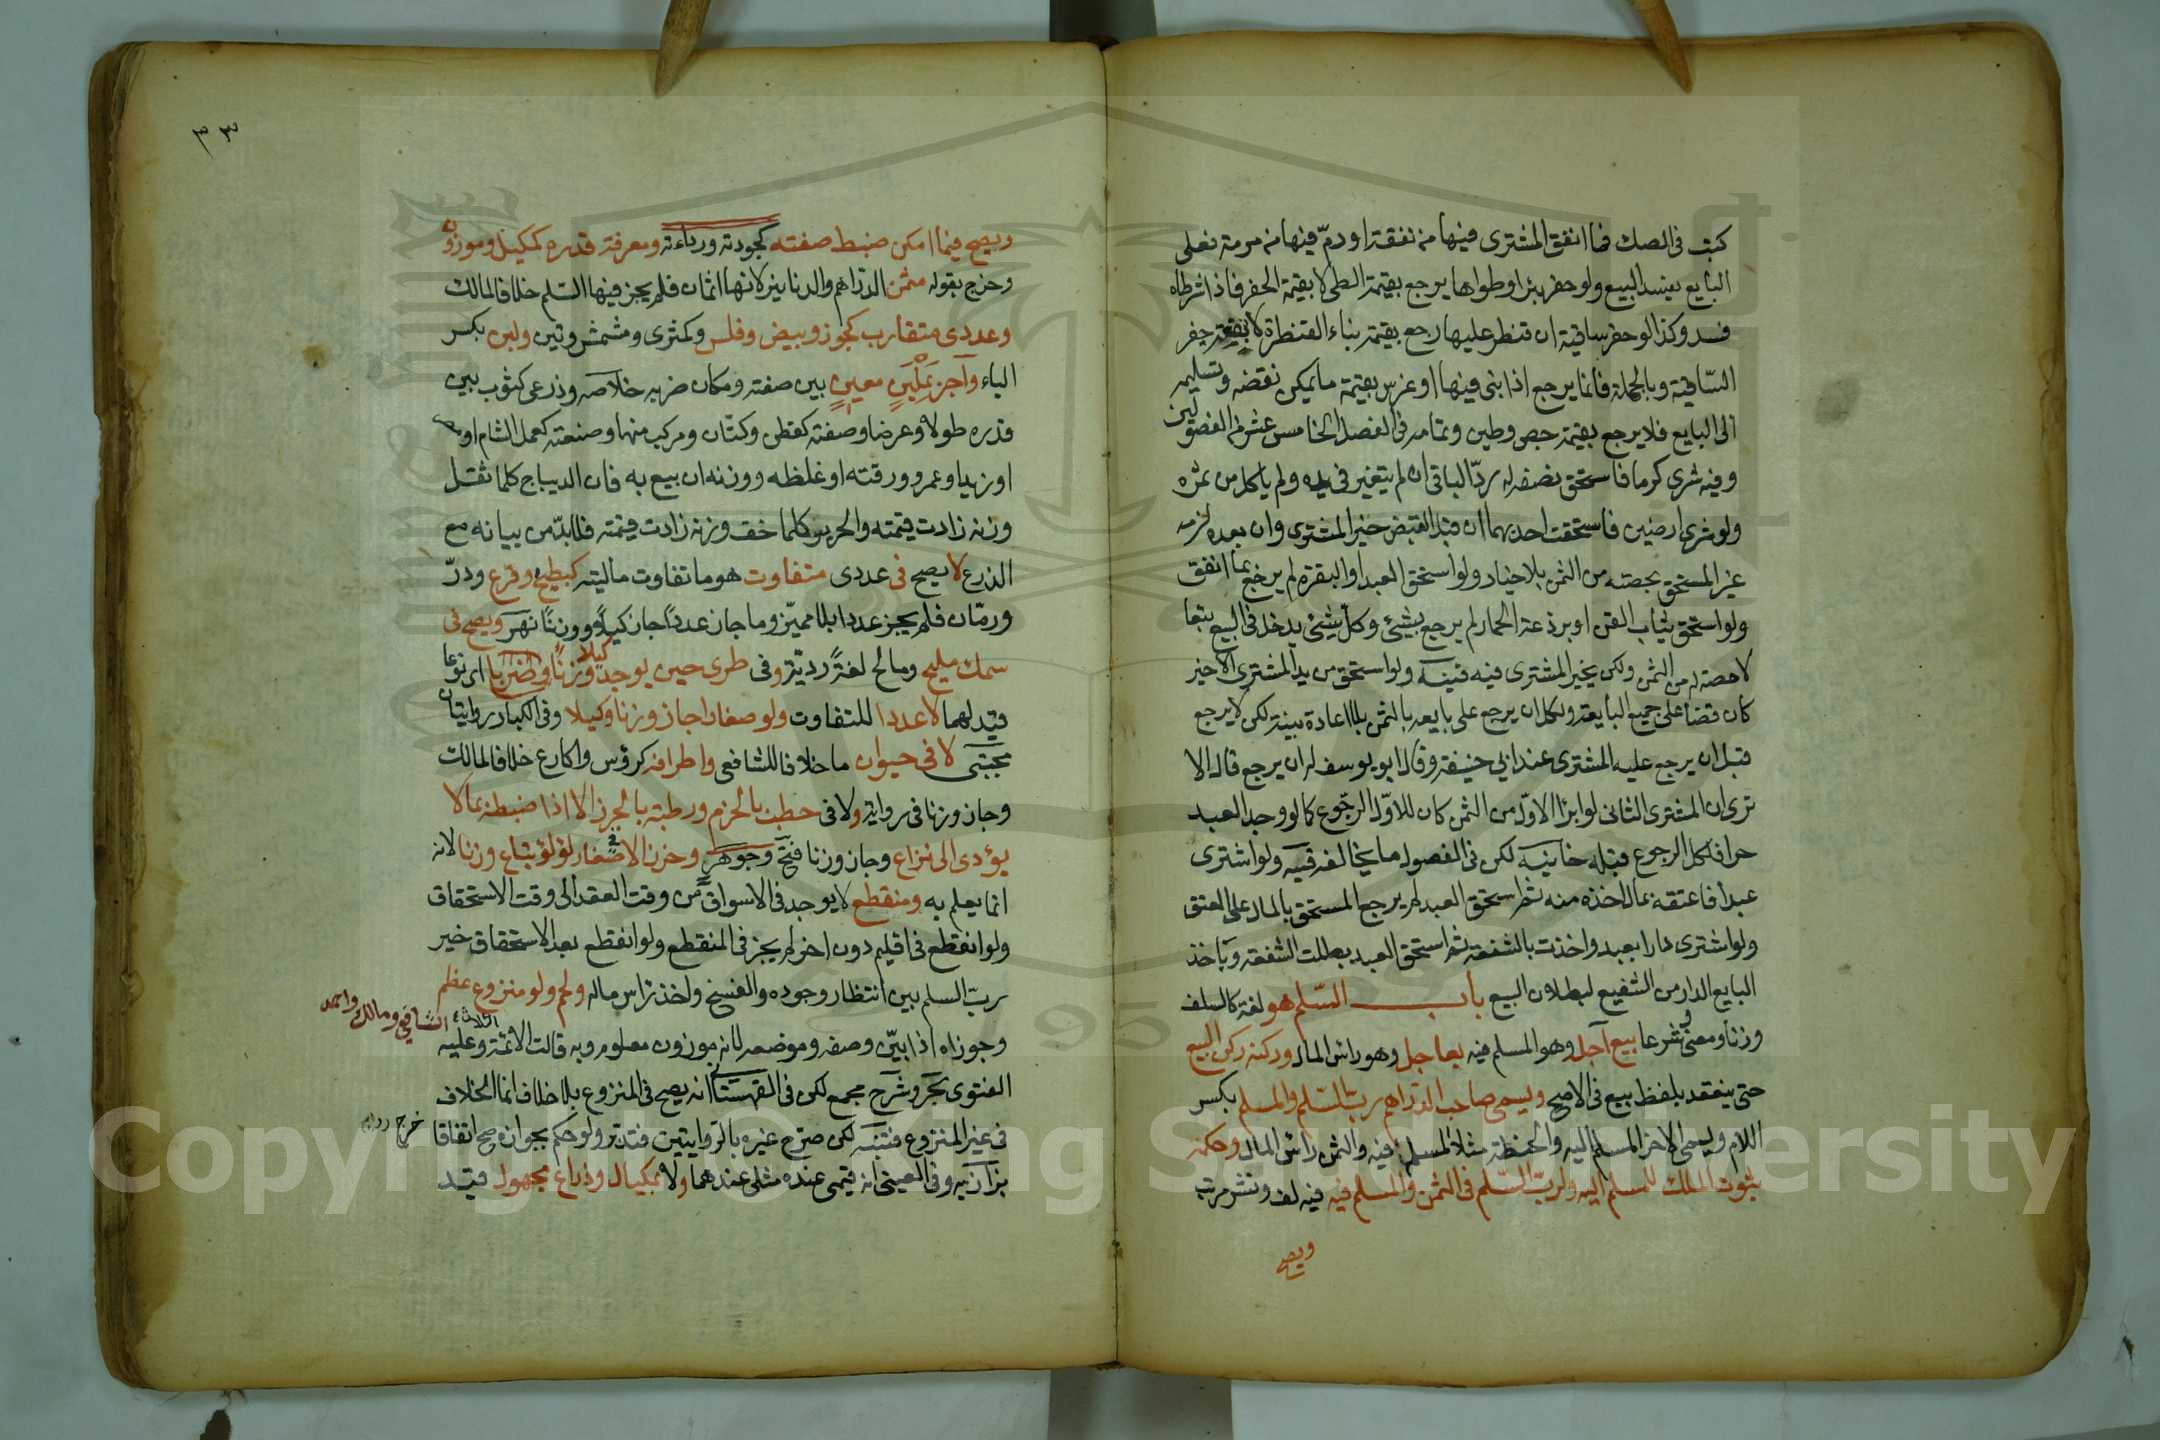 كتب فى الصك فما انفق المشترى فيها من نفقة او رمّ فيها من مرمة فعلى
البايع يفسد البيع ولو حفر بئرا وطواها يرجع بقيمة الطى لا بقيمة الحفر فاذا شرطاه
فسد وكذا لو حفر ساقية ان قنطر عليها رجع بقيمة بناء القنطرة لا بنفقة حفر
السّاقية وبالجملة فانما يرجع اذا بنى فيها او غرس بقيمة ما يمكن نقضه وتسليمه
الى البايع فلا يرجع بقيمة جص وطين وتمامه فى الفصل الخامس عشر من الفصولين
وفيه شرى كرما فاستحق نصفه له ردّ الباقى ان لم يتغير فى يده ولم ياكل من ثمره
ولو شرى ارضين فاستحقت احديهما ان قبل القبض خير المشترى وان بعده لزمه
غير المستحق بحصته من الثمن بلا خيار ولو استحق العبد او البقرة لم يرجع بما انفق
ولو استحق ثياب القن او برذعة الحمار لم يرجع بشئ وكل شئ يدخل فى البيع تبعا
لا حصة له من الثمن ولكن يخير المشترى فيه قنيه ولو استحق من يد المشترى الاخير
كان قضا على جميع البايعة ولكل ان يرجع على بايعه بالثمن بلا اعادة بينة لكن لا يرجع
قبل ان يرجع عليه المشترى عند ابى حنيفة وقال ابو يوسف له ان يرجع قال الا
ترى ان المشترى الثانى لو ابرا الاول من الثمن كان للاوّل الرجوع كما لو وجد العبد
حرا فلكل الرجوع قبله خانيه لكن فى الفصول ما يخالفه فتنبه ولو اشترى
عبدا فاعتقه بمال اخذه منه ثم استحق العبد لم يرجع المستحق بالمال على المعتق
ولو اشترى دارا بعبد واخذت بالشفعة ثم استحق العبد بطلت الشفعة وياخذ
البايع الدار من الشفيع لبطلان البيع باب السّلم هو لغة كالسلف
وزنا ومعنى وشرعا بيع آجل وهو المسلم فيه بعاجل وهو راس المال وركنه ركن البيع
حتى ينعقد بلفظ بيع فى الاصح ويسمى صاحب الدراهم ربّ السّلم والمسلم بكسر
اللام ويسمى الاخر المسلم اليه والحنطة مثلا المسلم فيه والثمن راس المال وحكمه
ثبوت الملك للمسلم اليه ولربّ السّلم فى الثمن والمسلم فيه فيه لف ونشر مرتب
ويصح
٣٣
ويصح فيما امكن ضبط صفته كجودته ورداءته ومعرفة قدره كمكيل وموزون
وخرج بقوله مثمن الدراهم والدنانير لانها اثمان فلم يجز فيها السّلم خلافا لمالك
وعددى متقارب كجوز وبيض وفلس وكمثرى ومشمش وتين ولبن بكسر
الباء وآجر بملبن معين بين صفته ومكان ضربه خلاصه وذرعى كثوب بين
قدره طولا وعرضا وصفته كقطن وكتان ومركب منهما وصنعته كعمل الشام او
او زيد او عمرو ورقته او غلظه ووزنه ان بيع به فان الديباج كلما ثقل
وزنه زادت قيمته والحرير كلما خف وزنه زادت قيمته فلا بدّ من بيانه مع
الذرع لا يصح فى عددى متفاوت هو ما تفاوت ماليته كبطيخ وقرع ودرّ
ورمّان فلم يجز عددا بلا مميّز وما جاز عدداً جاز كيلاً ووزنا نهر ويصح فى
سمك مليح ومالح لغة رديّة وفى طرى حين يوجد وزنا وضربا اى نوعا
كيلا
قيد لهما لا عددا للتفاوت ولو صغارا جاز وزنا وكيلا وفى الكبار روايتان
مجتبى لا فى حيوان ما خلافا للشافعى واطرافه كرؤس واكارع خلافا لمالك
وجاز وزنا فى رواية ولا فى حطب بالحزم ورطبة بالجرز الا اذا ضبطه بما لا
يؤدى الى نزاع وجاز وزنا فتح وجوهر وخرز الا صغار لؤلؤ تباع وزنا لانه
انما يعلم به ومنقطع لا يوجد فى الاسواق من وقت العقد الى وقت الاستحقاق
ولو انقطع فى اقليم دون اخر لم يجز فى المنقطع ولو انقطع بعد الاستحقاق خير
ربّ السلم بين انتظار وجوده والفسخ واخذ راس ماله ولحم ولو منزوع عظم
وجوزاه اذا بيّن وصفه وموضعه لانه موزون معلوم وبه قالت الائمة وعليه
الثلاثة الشافعى ومالك واحمد
الفتوى بحر وشرح مجمع لكن فى القهستانى انه يصح فى المنزوع بلا خلاف انما الخلاف
فى غير المنزوع فتنبه لكن صرّح غيره بالروايتين فتدبر ولو حكم بجوازه صح اتفاقا
بزازيه وفى العينى انه قيمى عنده مثلى عندهما ولا بمكيال وذراع مجهول قيد
Copyright © King Saud University
1957